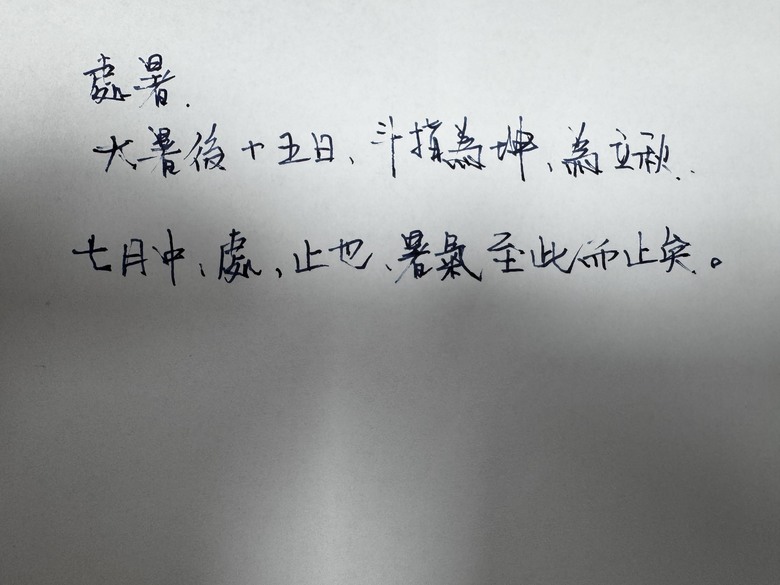 處暑.
大暑後十五日、斗指為坤、為立秋..
七月中、處、止也、暑氣至此而止矣。